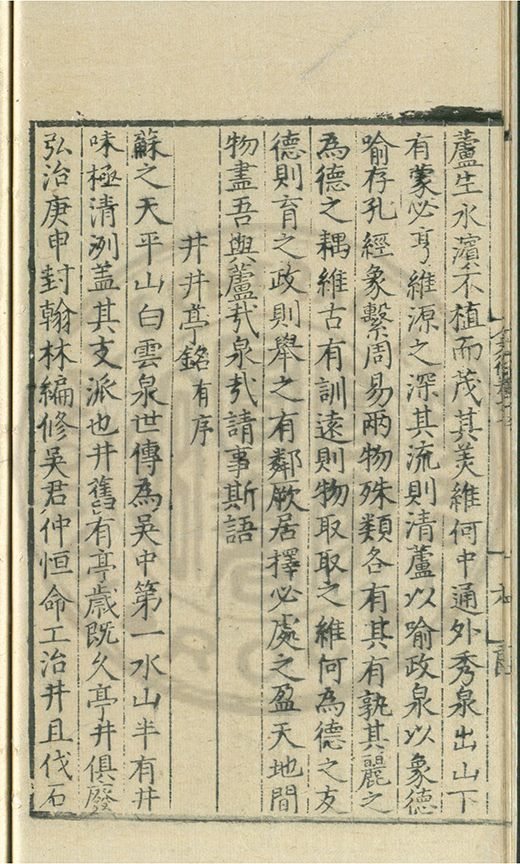 蘆生水濵不植而茂其美維何中通外秀泉出山下
有蒙必亨維源之深其流則清蘆以喻政泉以象德
喻存孔經象繫周易兩物殊類各有其有孰其麗之
為德之耦維古有訓遠則物取取之維何為德之友
德則育之政則舉之有鄰厥居擇必處之盈天地間
物盡吾與蘆㢤泉㢤請事斯語
井井亭銘有序
蘇之天平山白雲泉世傳為吳中第一水山半有井
味極清洌盖其支派也井舊有亭歲既久亭井俱廢
弘治庚申封翰林編修吳君仲恒命工治井且伐石